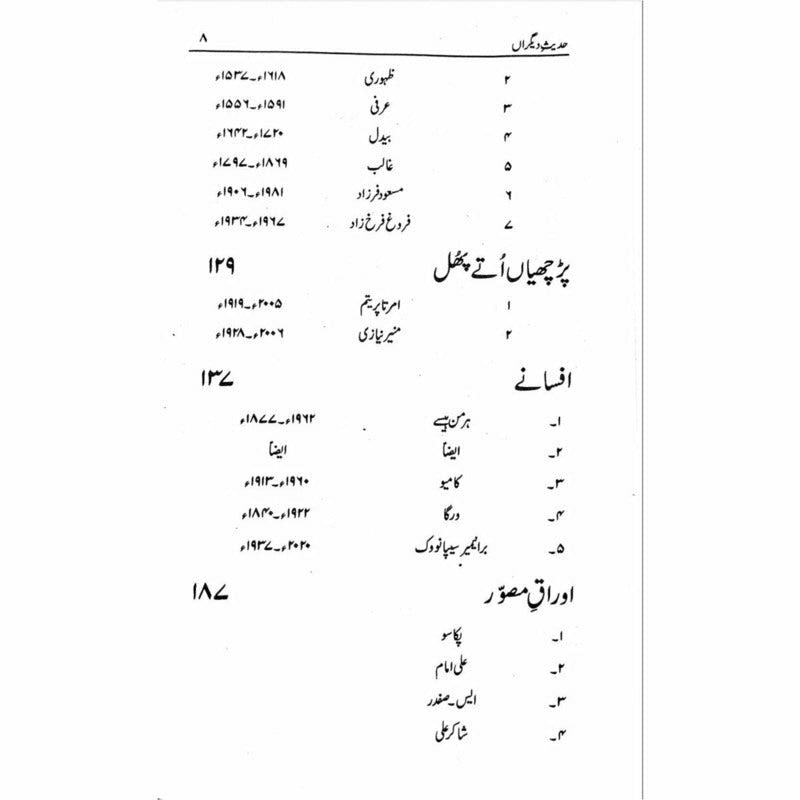 حدیثِ دیگراں ۸
۲ ظہوری ۱۶۱۸ء۔۱۵۳۷ء
۳ عرفی ۱۵۹۱ء۔۱۵۵۶ء
۴ بیدل ۱۷۲۰ء۔۱۶۴۲ء
۵ غالب ۱۸۶۹ء۔۱۷۹۷ء
۶ مسعود فرزاد ۱۹۸۱ء۔۱۹۰۶ء
۷ فروغ فرخ زاد ۱۹۶۷ء۔۱۹۳۴ء
پڑچھیاں اُتے پھُل ۱۲۹
۱ امرتا پریتم ۲۰۰۵ء۔۱۹۱۹ء
۲ منیر نیازی ۲۰۰۶ء۔۱۹۲۸ء
افسانے ۱۳۷
۱۔ ہرمن ہیسے ۱۹۶۲ء۔۱۸۷۷ء
۲۔ ایضاً ایضاً
۳۔ کامیو ۱۹۶۰ء۔۱۹۱۳ء
۴۔ ورگا ۱۹۲۲ء۔۱۸۴۰ء
۵۔ برانیمیر سیپانووک ۲۰۲۰ء۔۱۹۳۷ء
اوراقِ مصوّر ۱۸۷
۱۔ پکاسو
۲۔ علی امام
۳۔ ایس۔صفدر
۴۔ شاکر علی